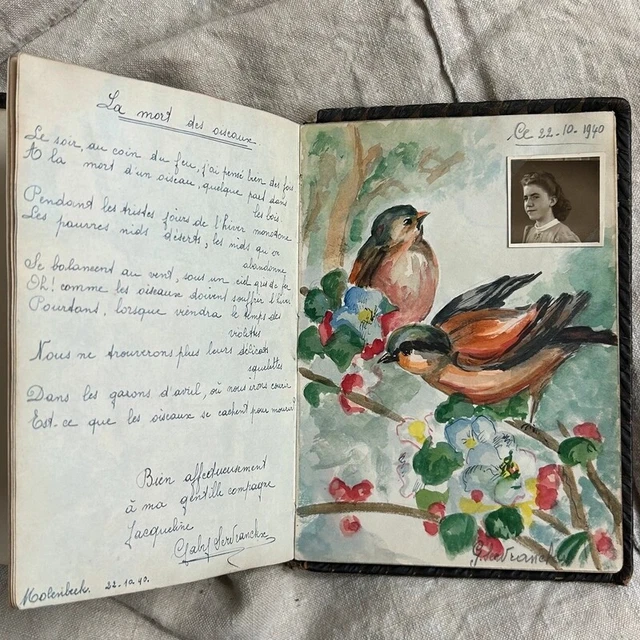 La mort des oiseaux
Le soir, au coin du feu, j'ai pensé bien des fois
A la mort d'un oiseau, quelque part dans
les bois
Pendant les tristes jours de l'hiver monotone
Les pauvres nids déserts, les nids qu'on
abandonne
Se balancent au vent, sous un ciel gris de fer
Oh! comme les oiseaux doivent souffrir l'hiver
Pourtant, lorsque viendra le temps des
violettes
Nous ne trouverons plus leurs délicats
squelettes
Dans les gazons d'avril, où nous irons courir
Est-ce que les oiseaux se cachent pour mourir?
Bien affectueusement
à ma gentille compagne
Jacqueline
Molenbeek. 22.10.40.
Ce 22-10-1940